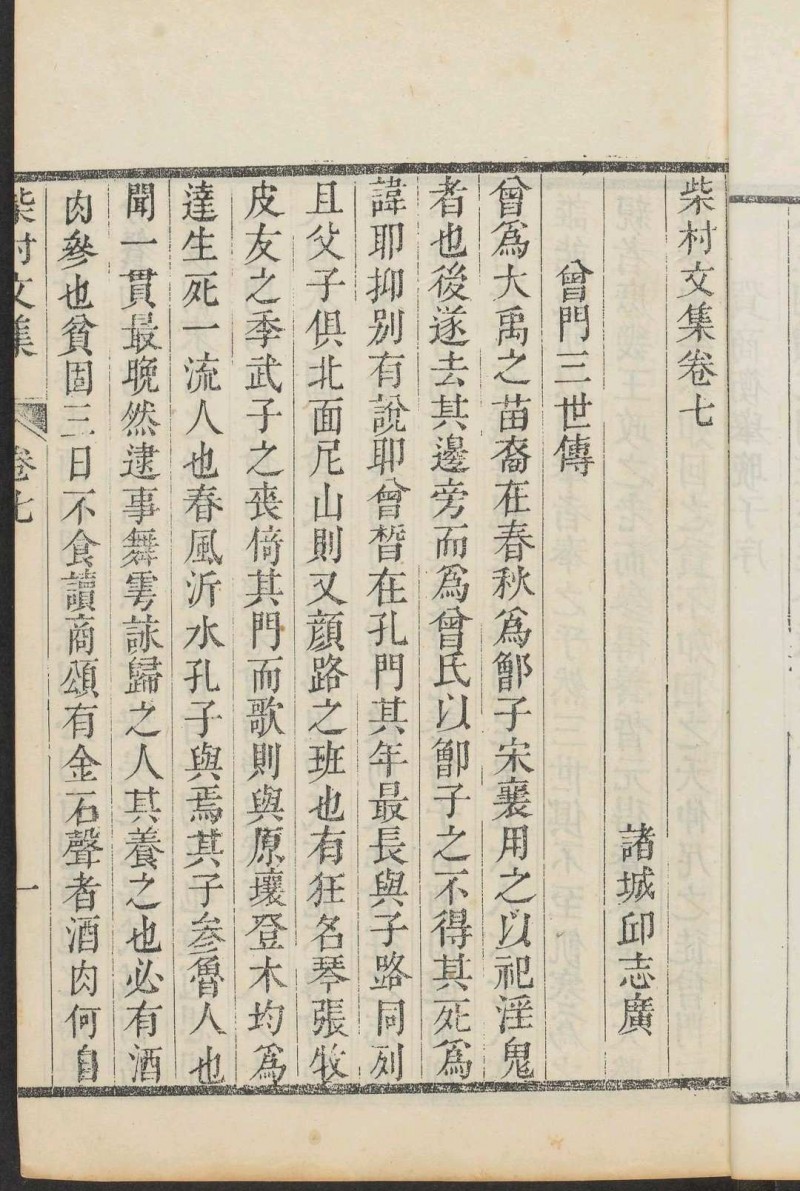 柴村文集卷七
諸城邱志廣
曾門三世傳
曾爲大禹之苗裔在春秋爲鄫子宋襄用之以祀淫鬼
者也後遂去其邊旁而爲曾氏以鄫子之不得其死爲
諱耶抑别有說耶曾晳在孔門其年最長與子路同列
且父子俱北面尼山則又顔路之班也有狂名琴張牧
皮友之季武子之喪倚其門而歌則與原壤登木均爲
達生死一流人也春風沂水孔子與焉其子參魯人也
聞一貫最晚然逮事舞雩詠歸之人其養之也必有酒
肉參也貧固三日不食讀商頌有金石聲者酒肉何自
柴村文集 卷七 一